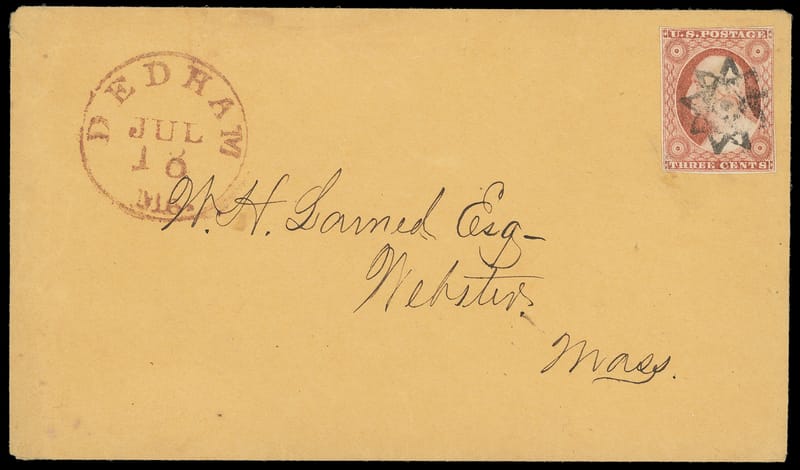 DEDHAM
JUL
18
Ms.
U.S. POSTAGE
THREE CENTS
W. H. Larned Esq
Webster.
Mass.